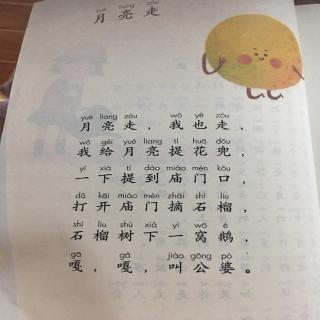 yuè liang zǒu
月亮走
yuè liang zǒu , wǒ yě zǒu ,
月亮走,我也走,
wǒ gěi yuè liang tí huā dōu
我给月亮提花兜,
yí xià tí dào miào mén kǒu
一下提到庙门口,
dǎ kāi miào mén zhāi shí liu
打开庙门摘石榴,
shí liu shù xià yì wō é
石榴树下一窝鹅,
gā gā jiào gōng pó
嘎,嘎,叫公婆。